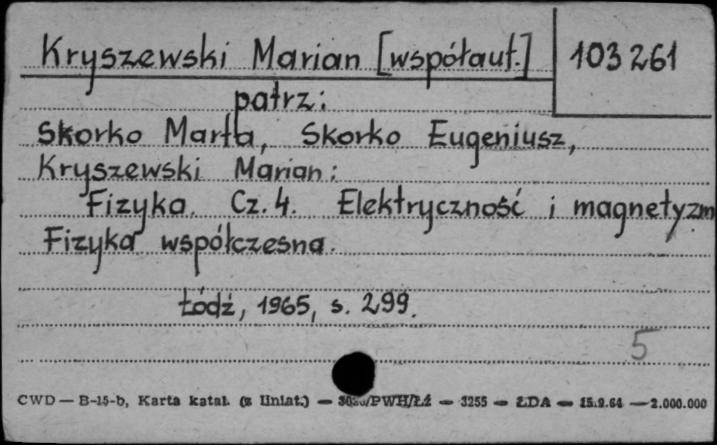 Kryszewski Marian [współaut.] 103 261
patrz:
Skorko Marta, Skorko Eugeniusz,
Kryszewski Marian:
Fizyka. Cz. 4. Elektryczność i magnetyzm
Fizyka współczesna.
Łódź, 1965, s. 299.
5
CWD — B-15-b, Karta katal. (z liniat.) — /PWH/Łż — 3255 — ŁDA — 15.9.64 — 2.000.000